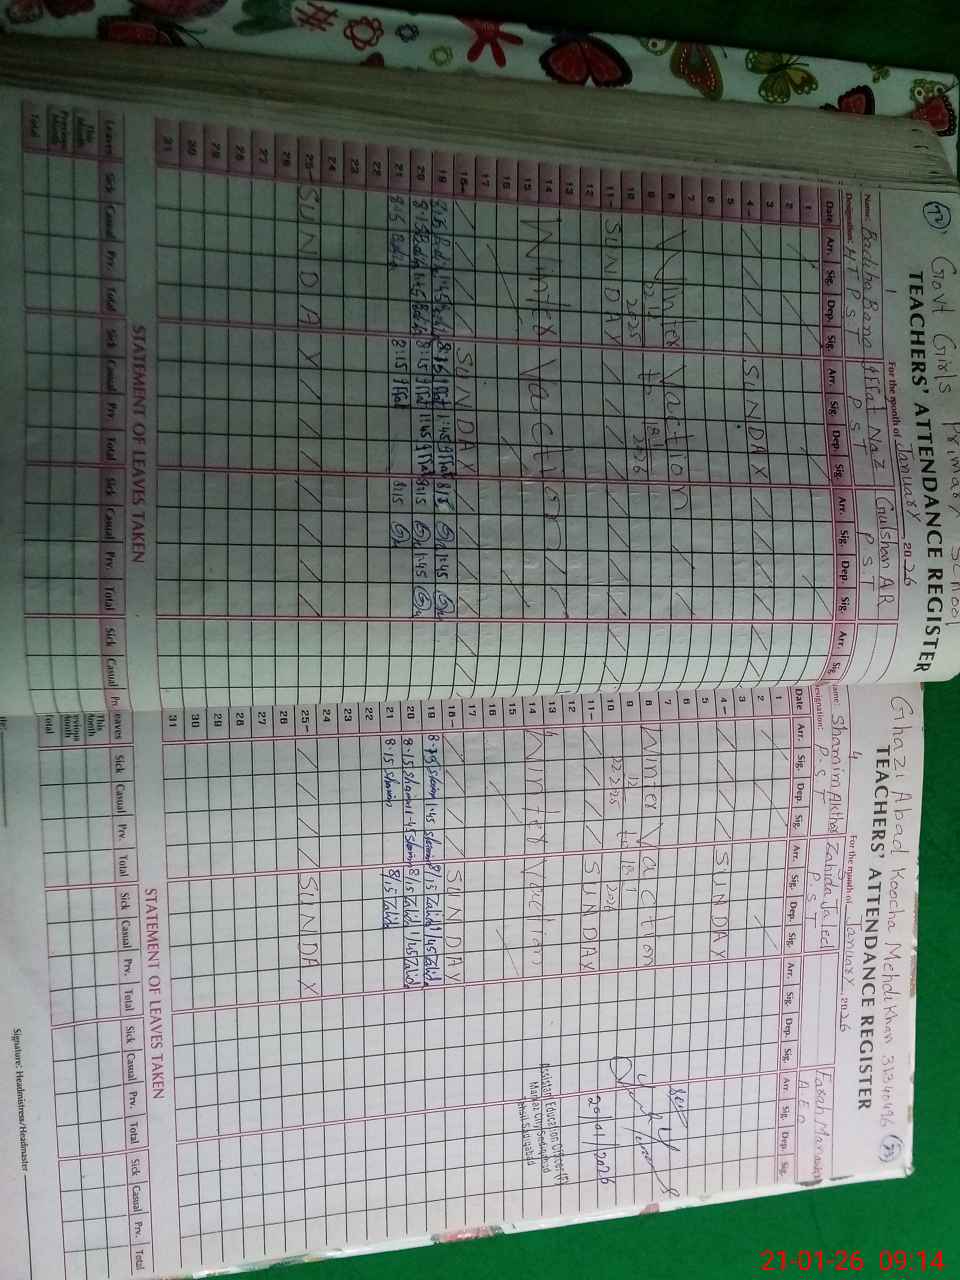 72
Govt Girls Primary School
TEACHERS' ATTENDANCE REGISTER
For the month of January 2026
Name: Badha Bano Iffat Naz Gulshan AR
Designation: H T P S T P S T P S T
Date Arr. Sig. Dep. Sig. Arr. Sig. Dep. Sig. Arr. Sig. Dep. Sig. Arr. Sig.
1
2
3
4 SUNDAY
5
6
7
8 Winter Vaction
9 22 12 2025 to 2026
10
11 SUNDAY
12
13
14 Winter Vaction
15
16
17
18 SUNDAY
19 8:15 1:45 8:15 1:45 8:15 1:45
20 8:15 1:45 8:15 1:45 8:15 1:45
21 8:15 8:15 Iffat 8:15
22
23
24
25 SUNDAY
26
27
28
29
30
31
STATEMENT OF LEAVES TAKEN
Leaves Sick Casual Prv. Total Sick Casual Prv. Total Sick Casual Prv. Total Sick Casual
This Month
Previous Month
Total
Ghazi Abad Koocha Mehdi Khan 31340496 73
TEACHERS' ATTENDANCE REGISTER
For the month of January 2026
Name: Shamim Akhtar Zahida Javed Farah Manawar
Designation: P.S.T P.S.T A E O
Date Arr. Sig. Dep. Sig. Arr. Sig. Dep. Sig. Arr. Sig. Dep. Sig. Arr. Sig. Dep. Sig.
1
2
3
4 SUNDAY
5
6
7
8 Winter Vaction
9 12 to
10 2026
11 SUNDAY
12
13
14 Winter Vaction
15
16
17
18 SUNDAY
19 8:15 Shamim 1:45 Shamim 8/15 Zahida 1/45 Zahida
20 8:15 Shamim 1:45 Shamim 8/15 Zahida 1/45 Zahida
21 8:15 Shamim 8/15 Zahida
22
23
24
25 SUNDAY
26
27
28
29
30
31
20/01/2026
Assistant Education Officer (F)
Markaz City Sadiqabad
STATEMENT OF LEAVES TAKEN
Leaves Sick Casual Prv. Total Sick Casual Prv. Total Sick Casual Prv. Total Sick Casual Prv. Total
This Month
Previous Month
Total
Signature: Headmistress/Headmaster
21-01-26 09:14